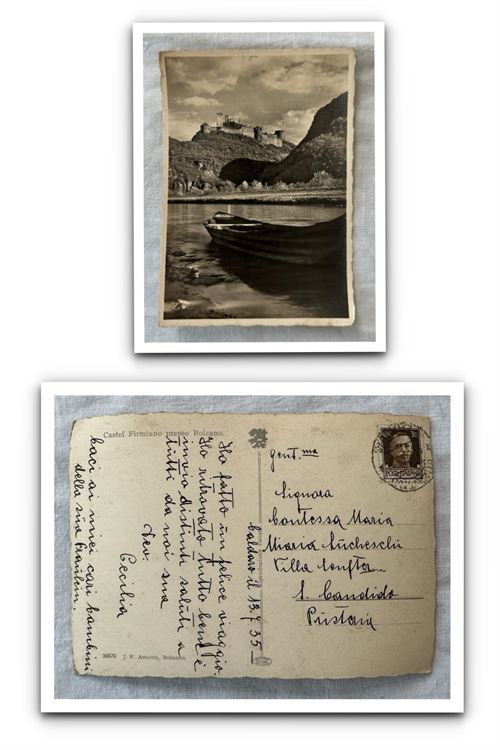 Castel Firmiano presso Bolzano.
Caldaro il 13.7.35
Ho fatto un felice viaggio.
Ho ritrovato tutto bene e
invio distinti saluti a
tutti da noi sua
Dev.
Cecilia
baci ai miei cari bambini
della sua Fräulein.
30670 J. F. Amonn, Bolzano
gent.ma
Signora
Contessa Maria
Maria Lucheschi
Villa
S. Candido
Pusteria